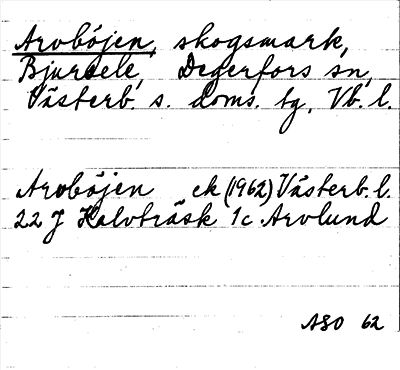 Arvböjen, skogsmark,
Bjursele, Degerfors sn,
Västerb. s. doms. tg, Vb. l.
Arvböjen ek (1962) Västerb. l.
22 J Kalvträsk 1c Arvlund
ASO 62